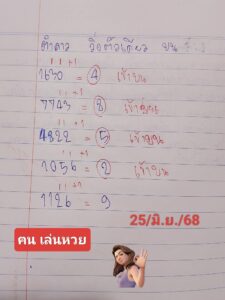 วิ่งตัวเดียว บน
11 +1
1630 = 4 เข้าบน
11 +1
7743 = 8 เข้าบน
11 +1
4822 = 5 เข้าบน
11 +1
1056 = 2 เข้าบน
11 +1
1126 = 9
25/มิ.ย./68
คน เล่นหวย